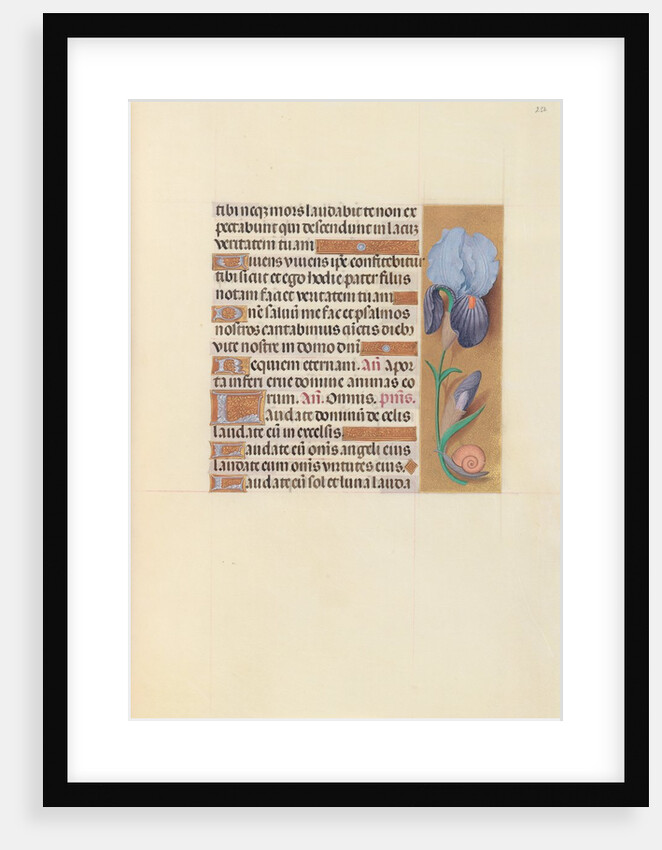 251
tibi neqз mors laudabit te non ex
pectabunt qui descendunt in lacuз
veritatem tuam
Uiuens viuens ip̄e confitebitur
tibi sicut et ego hodie pater filiis
notam faciet veritatem tuam
Dn̄e saluū me fac et psalmos
nostros cantabimus cūctis dieb
vite nostre in domo dn̄i
Requiem eternam. An̄ A por
ta inferi erue domine animas eo
rum. An̄. Omnis. ps̄ius.
Laudate dominū de celis
laudate eū in excelsis
Laudate eū om̄s angeli eius
laudate eum om̄s virtutes eius.
Laudate eū sol et luna lauda